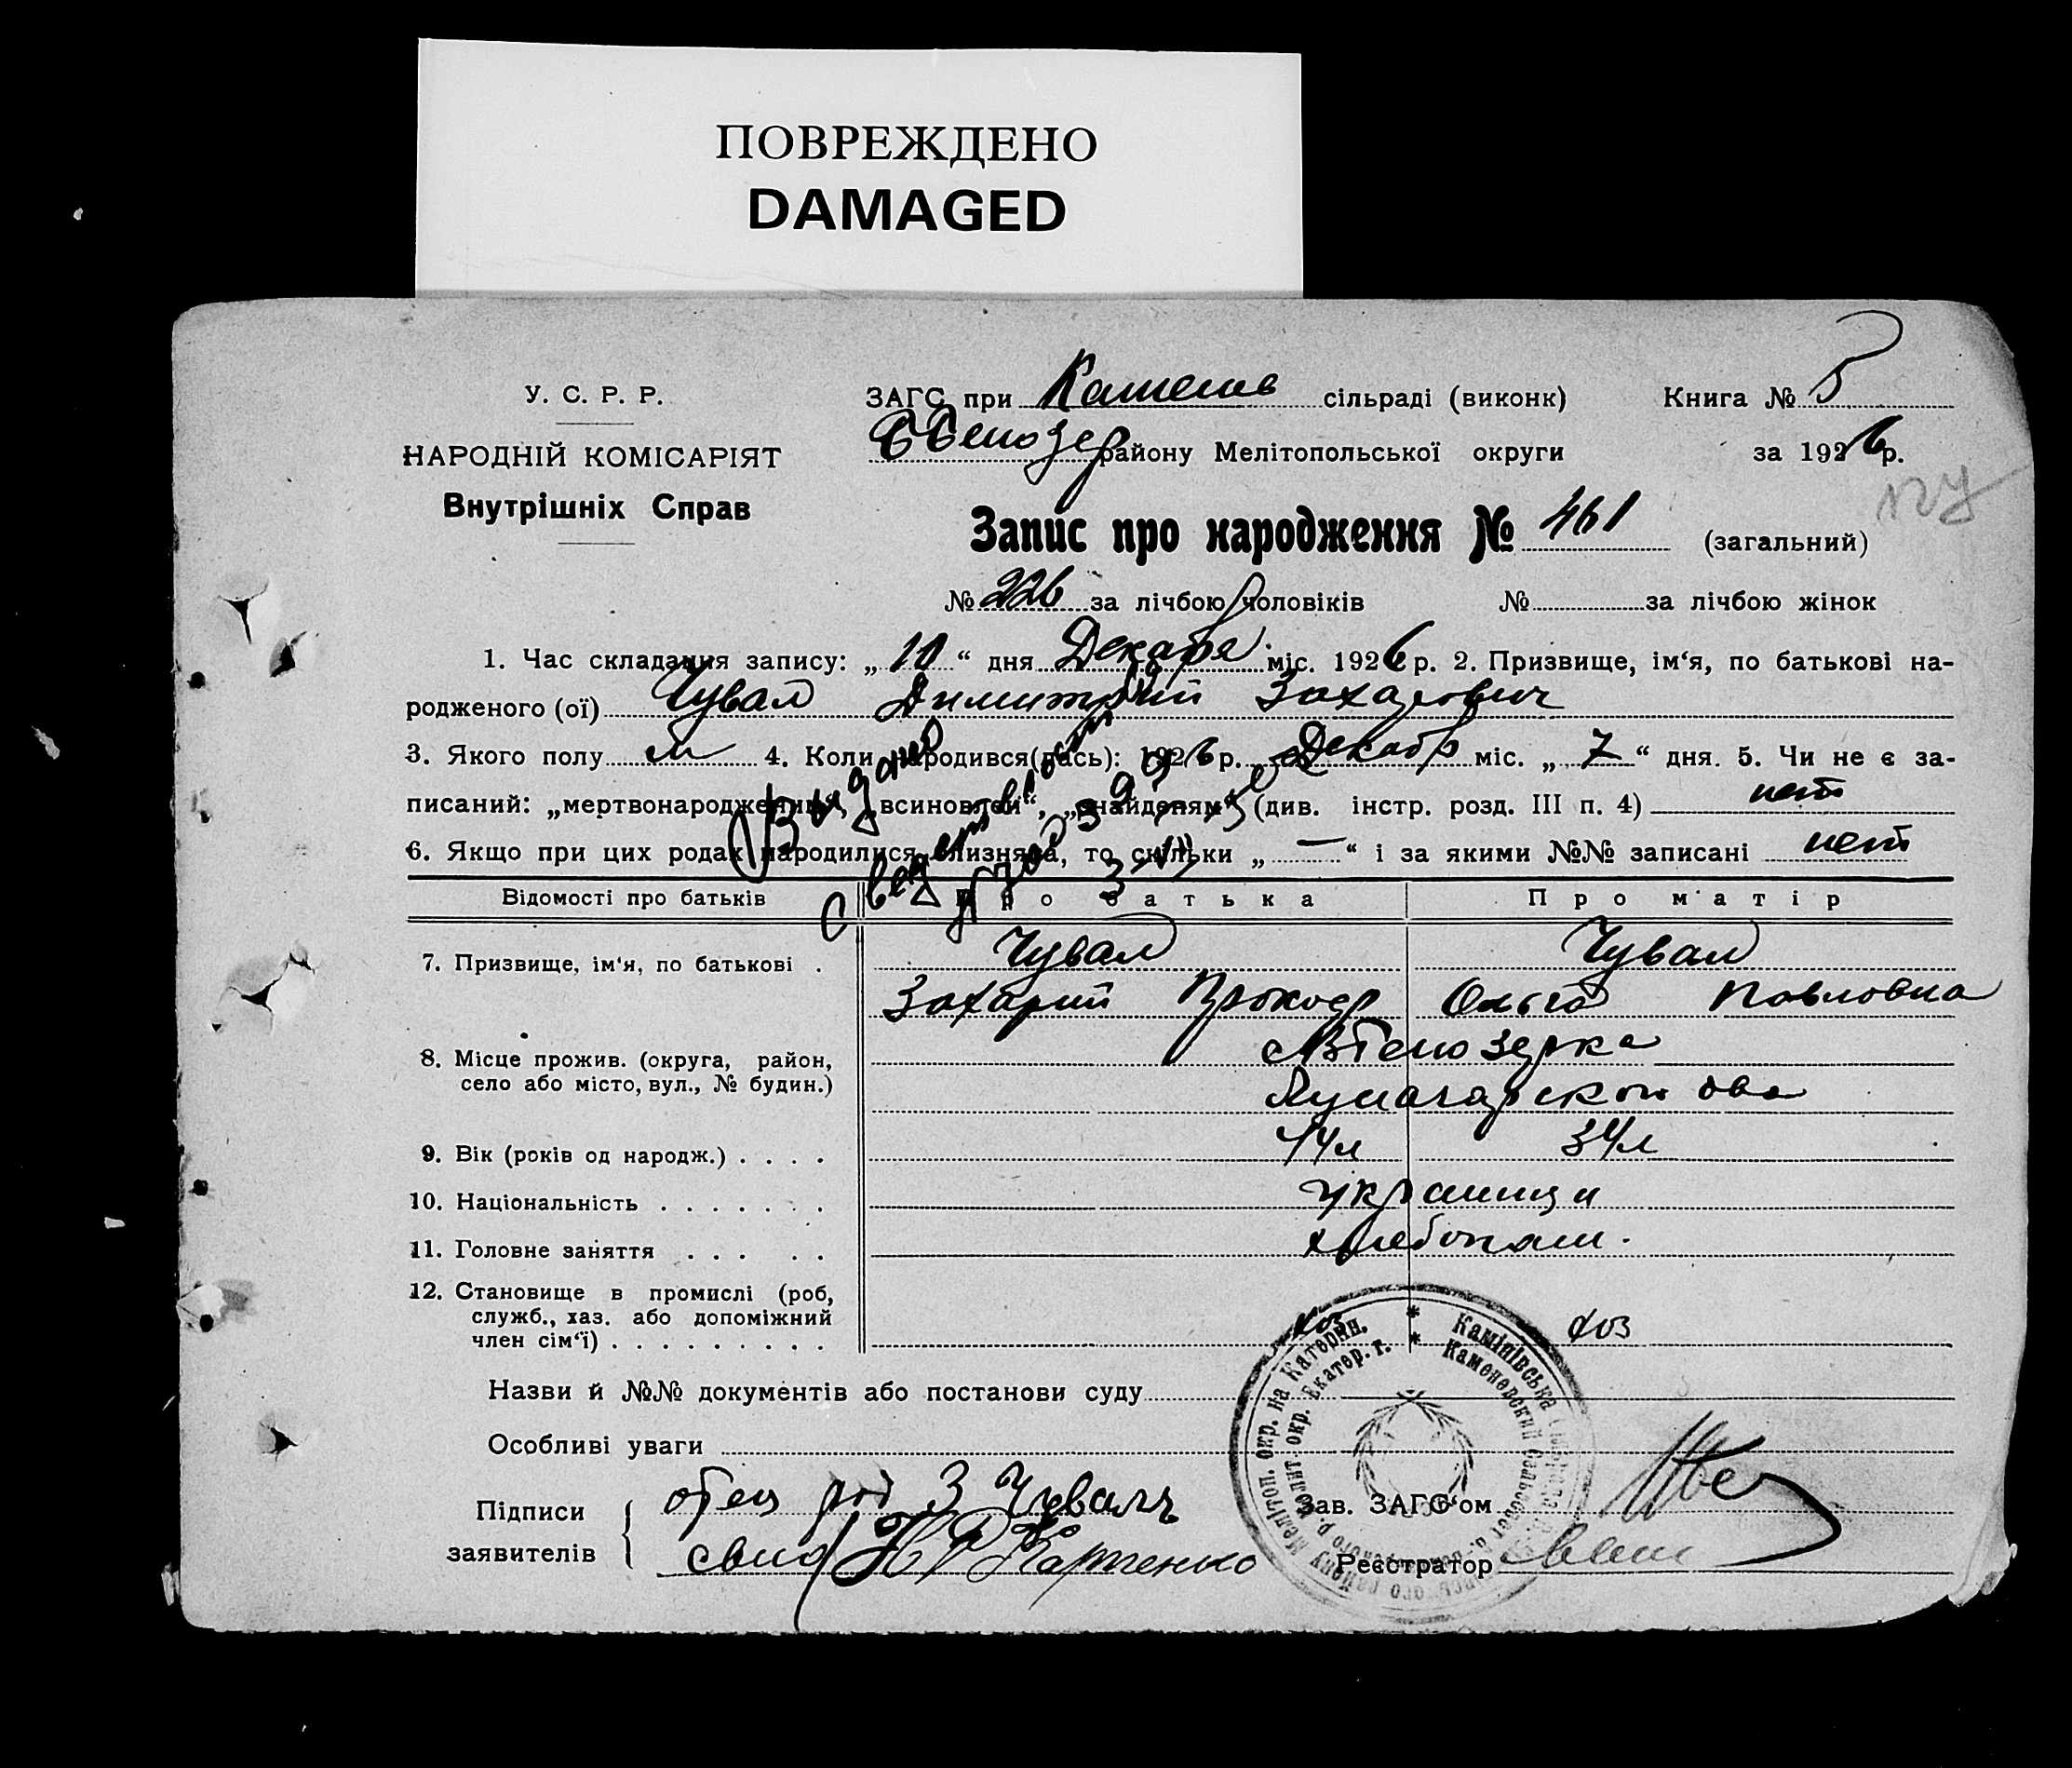 ПОВРЕЖДЕНО
DAMAGED
У. С. Р. Р.
НАРОДНІЙ КОМІСАРІЯТ
Внутрішніх Справ
ЗАГС при Каменов сільраді (виконк)
району Мелітопольської округи
Книга № 5
за 1926 р.
Запис про народження № 461 (загальний)
№ 226 за лічбою чоловіків № за лічбою жінок
1. Час складання запису: „10“ дня Декабря міс. 1926 р. 2. Призвище, ім‘я, по батькові на-
родженого (ої) Чувал Димитрий Захарович
3. Якого полу м 4. Коли народився(лась): 1926 р. Декабр міс. „7“ дня. 5. Чи не є за-
писаний: „мертвонароджений“, „всиновлен“, „знайденям“ (див. інстр. розд. III п. 4) нет
6. Якщо при цих родах народилися близнята, то скільки „—“ і за якими №№ записані нет
Выдано
Відомості про батьків Про батька Про матір
7. Призвище, ім‘я, по батькові . Чувал Чувал
Захарий Прокоф Ольга Павловна
8. Місце прожив. (округа, район,
село або місто, вул., № будин.)
9. Вік (років од народж.) . . . . 44л 34л
10. Національність . . . . . . . украинци
11. Головне заняття . . . . . хлебопаш.
12. Становище в промислі (роб,
служб., хаз. або допоміжний
член сім‘ї) . . . . . . . . . хоз хоз
Назви й №№ документів або постанови суду
Особливі уваги
Підписи
заявителів
отец З Чувалъ
Зав. ЗАГС‘ом
Реєстратор
Мелітоп. окр. на Катерин.
Мелит. окр. Екатер. г.
Камінівська
Каменовский сельсовет